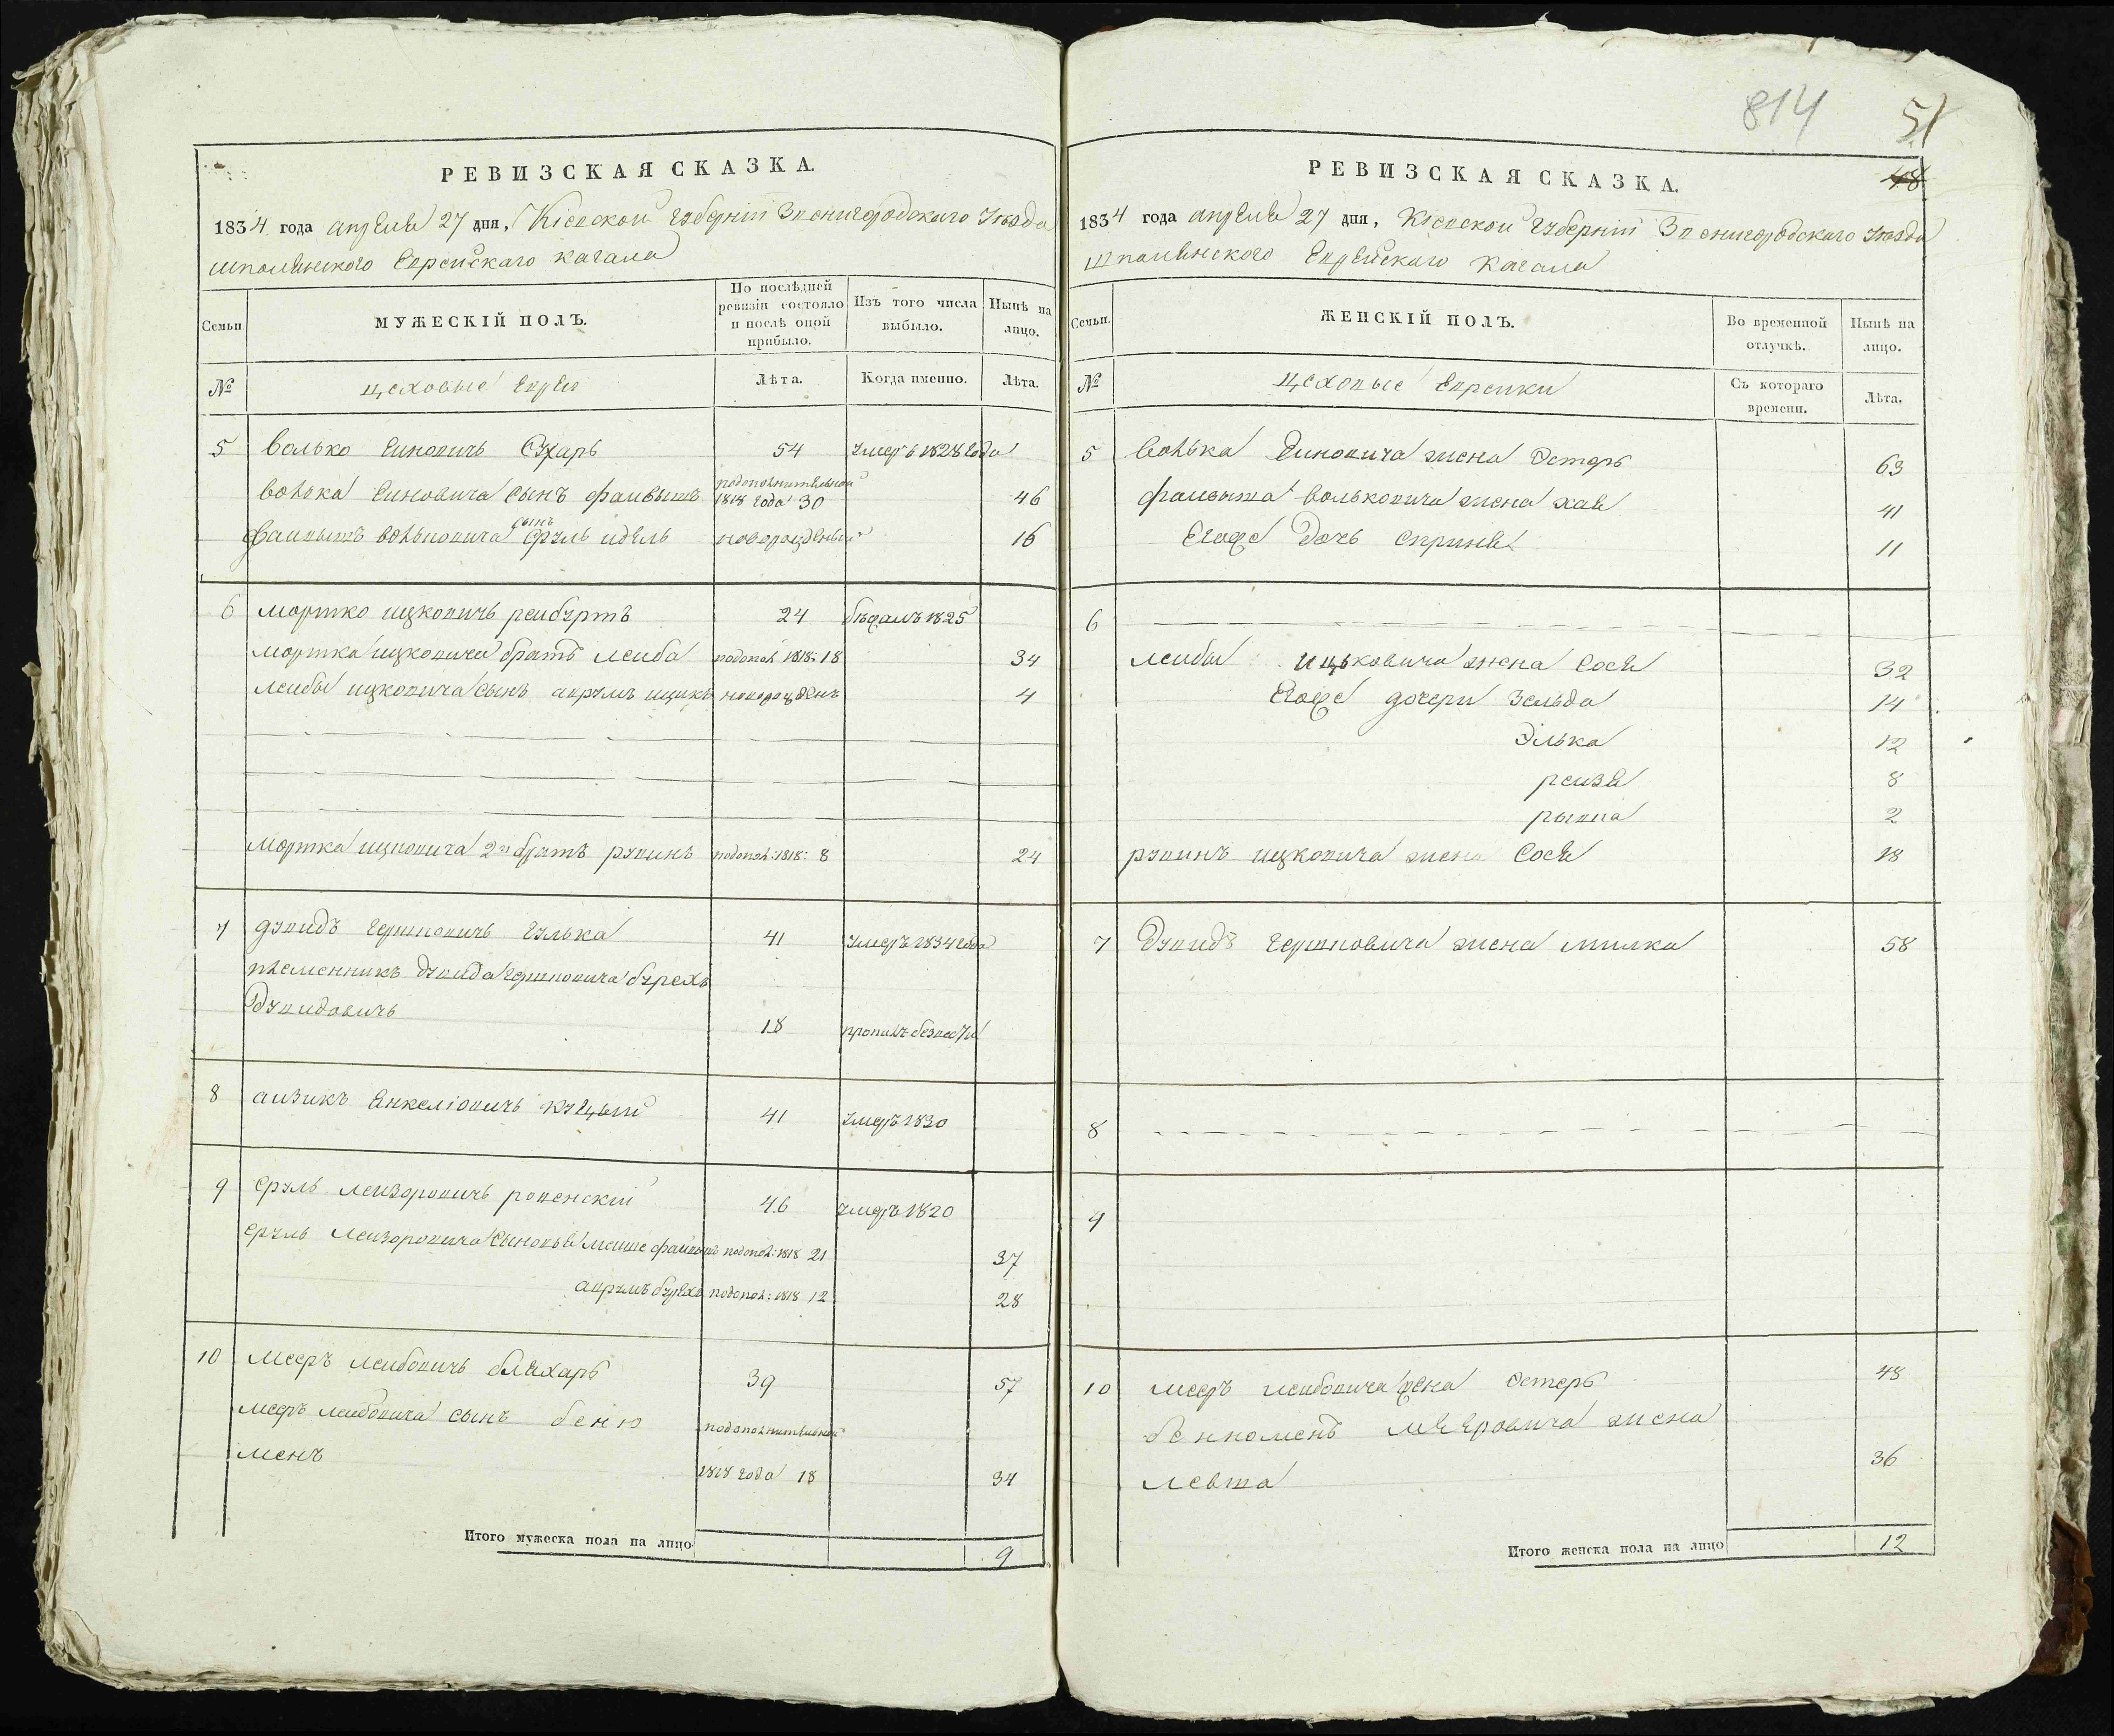 РЕВИЗСКАЯ СКАЗКА.
1834 года апреля 27 дня, Кіевской губерніи Звенигородскаго уѣзда
шполянского Еврейскаго кагала
Семьи
МУЖЕСКІЙ ПОЛЪ.
По послѣдней ревизіи состояло и послѣ оной прибыло.
Изъ того числа выбыло.
Нынѣ на лицо.
№
цеховые Евреи
Лѣта.
Когда именно.
Лѣта.
5 Волько Еиновичъ Сухарь 54 умеръ 1828 года
Волька Еиновича сынъ файвышъ подополнительной 1818 года 30 46
сынъ
Файвышъ Вольковича Сруль идель новорожденый 16
6 мортко ицковичъ рейбуртъ 24 бежалъ 1825
мортка ицковича братъ лейба подопол 1818: 18 34
лейбы ицковича сынъ аврумъ ицикъ новорожденъ 4
мортка ицковича 2й братъ рувинъ подопол: 1818: 8 24
7 дувидъ гершковичъ гулька 41 умеръ 1834 года
племенникъ дувида гершковича бурехъ
Дувидовичъ 18 пропалъ безвести
8 аизикъ Енкеліовичъ куцый 41 умеръ 1830
9 Сруль лейзоровичъ ровенскій 46 умеръ 1820
Сруль лейзоровича сыновья мошье файвышъ подопол: 1818 21 37
аврумъ бурехъ подопол: 1818 12 28
10 мееръ лейбовичъ бляхаръ 39 57
мееръ лейбовича сынъ беню
подополнительной
менъ 1818 года 18 34
Итого мужеска пола на лицо 9
814 51
48
РЕВИЗСКАЯ СКАЗКА.
1834 года апреля 27 дня, Кіевской губерніи Звенигородскаго уѣзда
Шполянского Еврейскаго Кагала
Семьи.
ЖЕНСКІЙ ПОЛЪ.
Во временной отлучкѣ.
Нынѣ на лицо.
№
Цеховые Еврейки
Съ котораго времени.
Лѣта.
5 Волька Еиновича жена Эстеръ 63
файвыша вольковича жена хая 41
Егоже дочь сприня 11
6
лейбы ицьковича жена Сося 32
Егоже дочери Зельда 14
Элька 12
рейзя 8
рывка 2
рувинъ ицковича жена Сося 18
7 Дувидъ гершковича жена милка 58
8
9
10 мееръ лейбовича жена Эстеръ 48
бенюменъ меёровича жена
левта 36
Итого женска пола на лицо 12